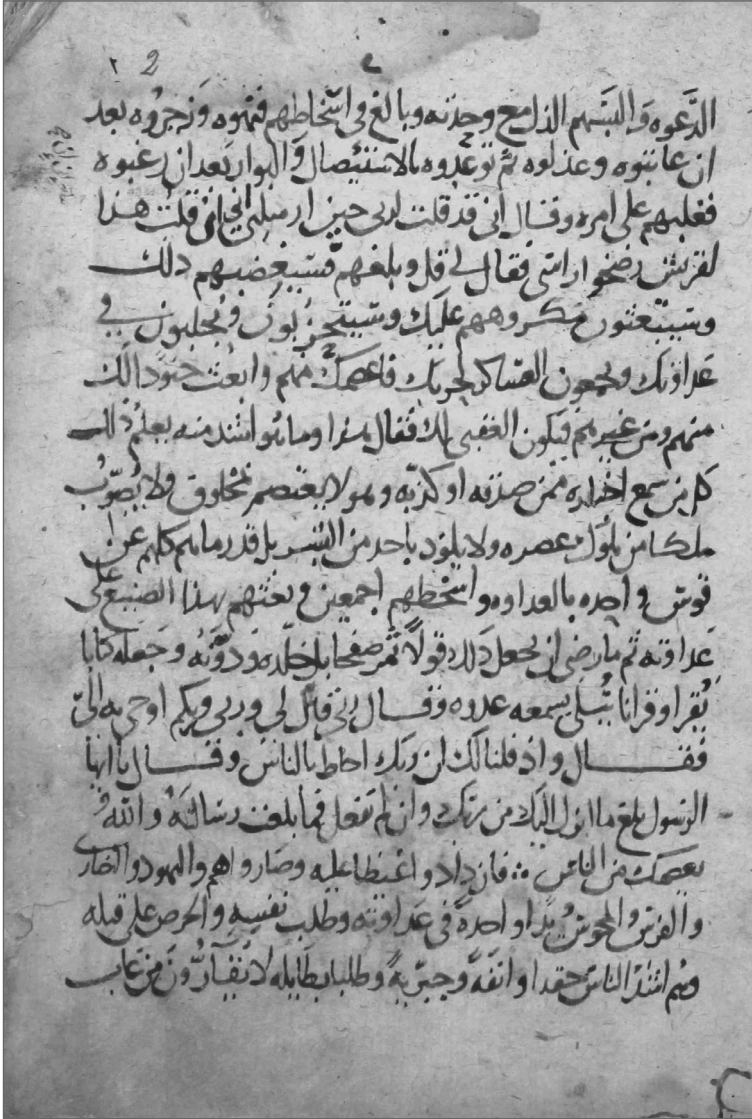 ٢ 2
الدعوه والبسهم الذل مع وحدته وبالغ في اسخاطهم فنهوه وزجروه بعد
ان عاتبوه وعذلوه ثم توعدوه بالاستئصال والبوار بعد ان رغبوه
فغلبهم على امره وقال اني قد قلت لربي حين ارسلني اني ان قلت هذا
لقريش رضخوا راسي فقال لي قل وبلغهم فسيغضبهم ذلك
وسيبعثون مكروههم عليك وسيتحزبون ويجلبون في
عداوتك ويجمعون العساكر لحربك فاعصمك منهم وابعث جنودا لك
منهم ومن غيرهم فيكون العقبى لك فقال هذا وما هو اشد منه يعلم ذلك
كل من سمع اخباره ممن صدقه او كذبه وهو لا يعتصم بمخلوق ولا يصوب
ملكا من ملوك عصره ولا يلوذ باحد من البشر بل قد رماهم كلهم عن
قوس واحده بالعداوه واسخطهم اجمعين وبعثهم بهذا الصنيع على
عداوته ثم ما رضي ان يجعل ذلك قولا يمر صفحا بل خلده ودونه وجعله كتابا
يقرا وقرانا يتلى يسمعه عدوه وقال ربي قائل لي وربي وربكم اوحى به الي
فقال واذ قلنا لك ان ربك احاط بالناس وقال يا ايها
الرسول بلغ ما انزل اليك من ربك وان لم تفعل فما بلغت رسالته والله
يعصمك من الناس فازدادوا غيظا عليه وصاروا هم واليهود والنصارى
والفرس والمجوس يدا واحدة في عداوته وطلب نفسه والحرص على قتله
وهم اشد الناس حقدا وانفة وجبرية وطلبا بطايله لا يقارون من عاب